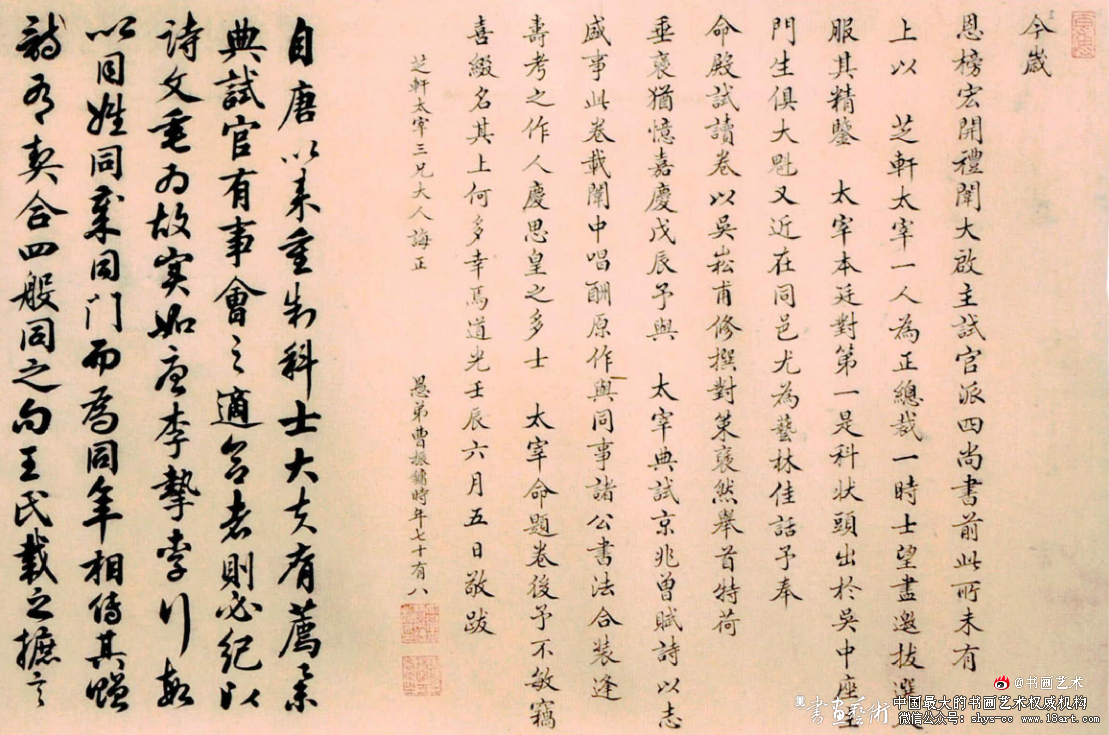 今歲
恩榜宏開禮闈大啟主試官派四尚書前此所未有
上以 芝軒太宰一人為正總裁一時士望盡邀拔選
服其精鑒 太宰本廷對第一是科狀頭出於吳中座主
門生俱大魁又近在同邑尤為藝林佳話予奉
命殿試讀卷以吳崧甫修撰對策裒然舉首特荷
垂褒猶憶嘉慶戊辰予與 太宰典試京兆曾賦詩以志
盛事此卷載闈中唱酬原作與同事諸公書法合裝逢
壽考之作人慶思皇之多士 太宰命題卷後予不敏竊
喜綴名其上何多幸焉道光壬辰六月五日敬跋
芝軒太宰三兄大人誨正
愚弟曹振鏞時年七十有八
自唐以來重制科士大夫有薦舉
典試官有事會之適合者則必紀以
詩文垂為故實如唐李摯李行敏
以同姓同年同門而為同年相傳其贈
詩有契合四般同之句王氏載之摭言
@书画艺术
書画藝術
中国最大的书画艺术权威机构
微信公众号：shys-cc www.18art.com